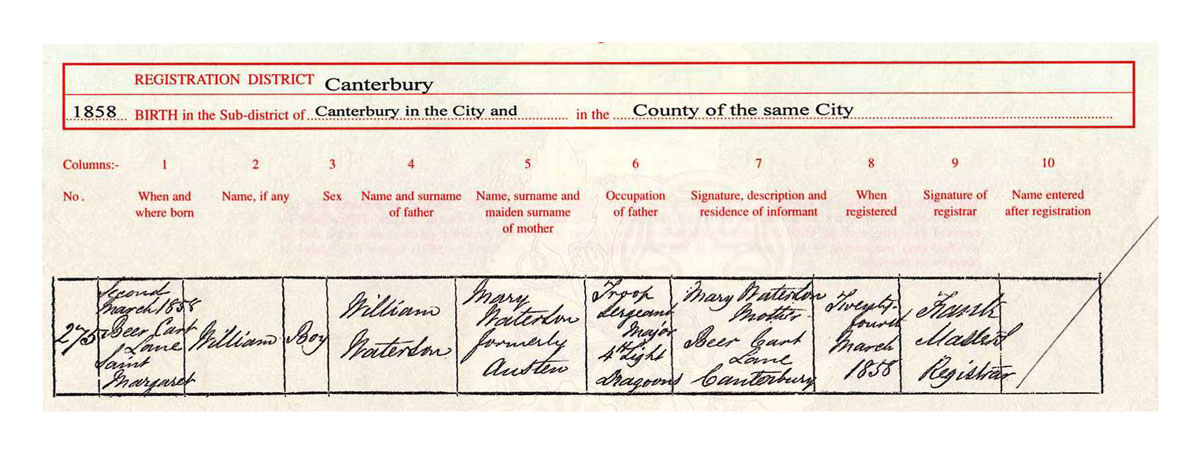 REGISTRATION DISTRICT Canterbury
1858 BIRTH in the Sub-district of Canterbury in the City and in the County of the same City
Columns:- 1 2 3 4 5 6 7 8 9 10
No. When and where born Name, if any Sex Name and surname of father Name, surname and maiden surname of mother Occupation of father Signature, description and residence of informant When registered Signature of registrar Name entered after registration
275
Second
March 1858
Beer Cart
Lane
Saint
Margaret
William
Boy
William
Waterson
Mary
Waterson
formerly
Austen
Troop
Sergeant
Major
4th Light
Dragoons
Mary Waterson
Mother
Beer Cart
Lane
Canterbury
Twenty-
fourth
March
1858
Frank
Registrar